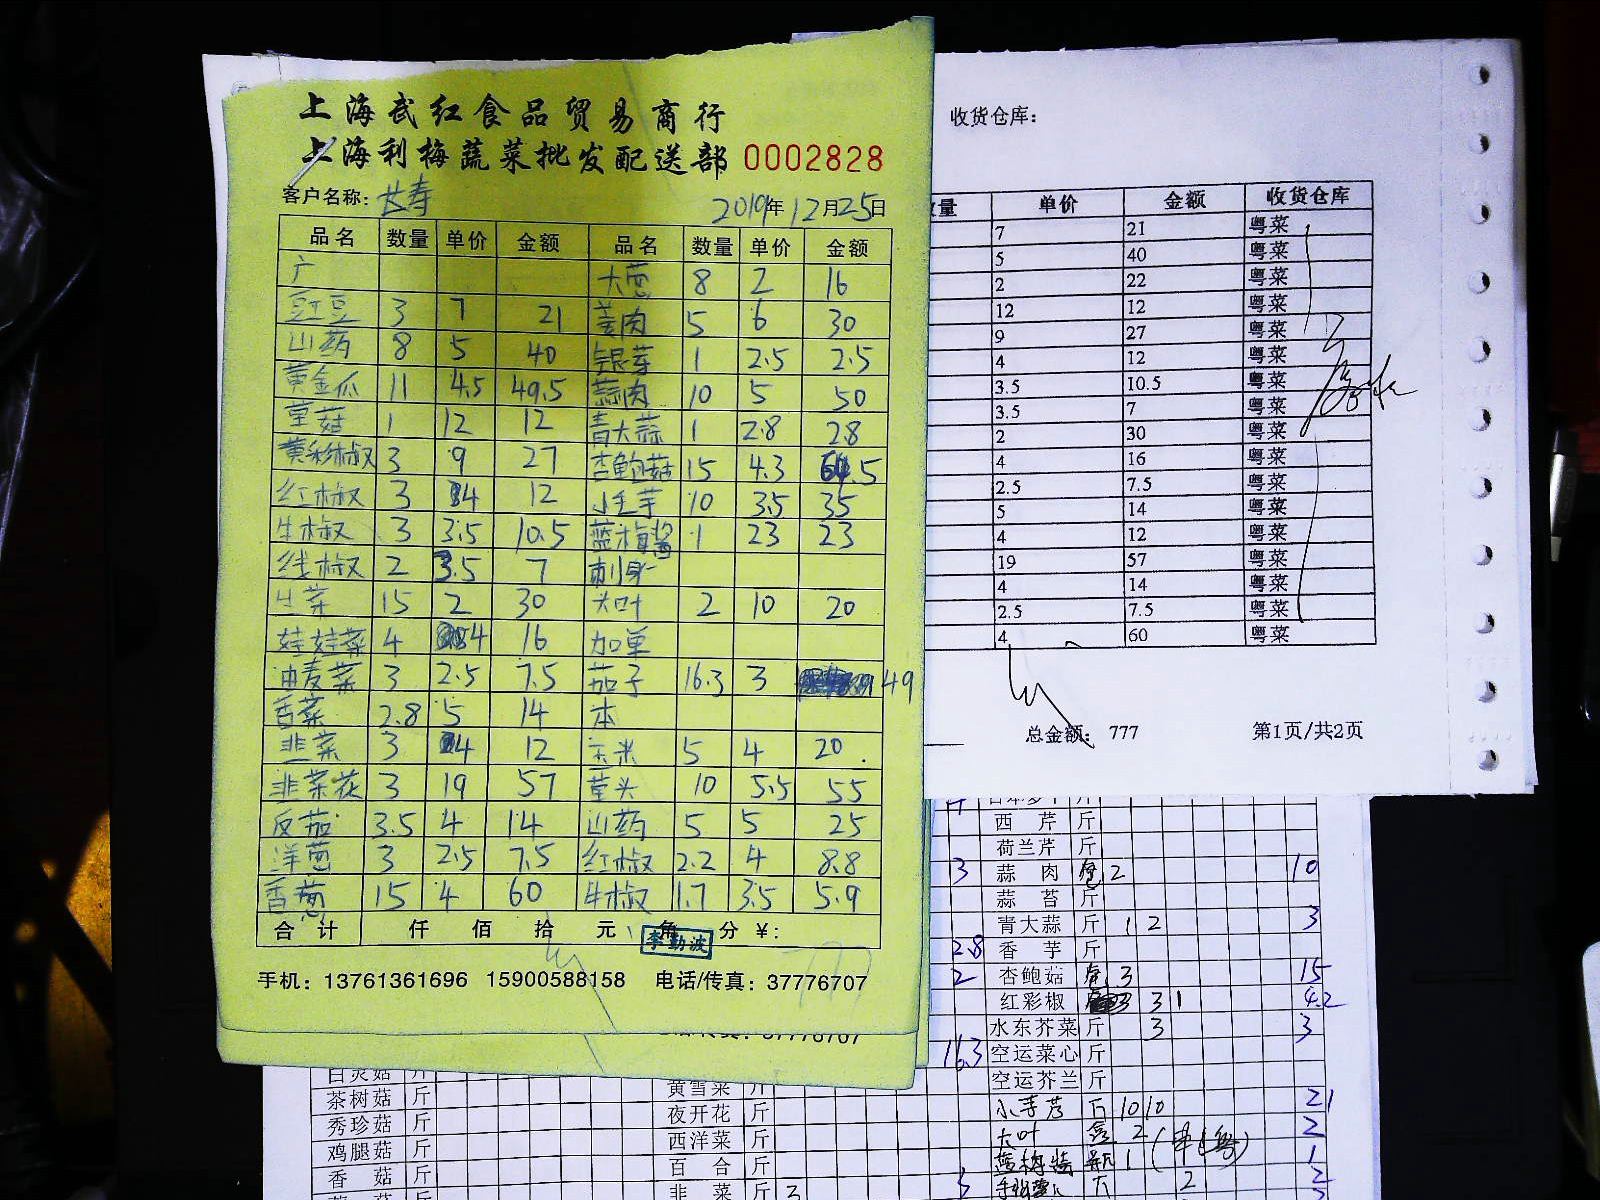 上海武红食品贸易商行
上海利梅蔬菜批发配送部 0002828
客户名称: 长寿 2019年12月25日
品名 数量 单价 金额 品名 数量 单价 金额
广 大葱 8 2 16
豇豆 3 7 21 姜肉 5 6 30
山药 8 5 40 银芽 1 2.5 2.5
黄金瓜 11 4.5 49.5 蒜肉 10 5 50
草菇 1 12 12 青大蒜 1 2.8 2.8
黄彩椒 3 9 27 杏鲍菇 15 4.3 64.5
红椒 3 4 12 小毛芋 10 3.5 35
牛椒 3 3.5 10.5 蓝梅酱 1 23 23
线椒 2 3.5 7 刺身
生菜 15 2 30 大叶 2 10 20
娃娃菜 4 4 16 加单
油麦菜 3 2.5 7.5 茄子 16.3 3 49
香菜 2.8 5 14 本
韭菜 3 4 12 玉米 5 4 20
韭菜花 3 19 57 茸头 10 5.5 55
反茄 3.5 4 14 山药 5 5 25
洋葱 3 2.5 7.5 红椒 2.2 4 8.8
香葱 15 4 60 牛椒 1.7 3.5 5.9
合计 仟 佰 拾 元 角 分 ¥:
李勤波
手机: 13761361696 15900588158 电话/传真: 37776707
37776707
收货仓库:
量 单价 金额 收货仓库
7 21 粤菜
5 40 粤菜
2 22 粤菜
12 12 粤菜
9 27 粤菜
4 12 粤菜
3.5 10.5 粤菜
3.5 7 粤菜
2 30 粤菜
4 16 粤菜
2.5 7.5 粤菜
5 14 粤菜
4 12 粤菜
19 57 粤菜
4 14 粤菜
2.5 7.5 粤菜
4 60 粤菜
总金额: 777 第1页/共2页
西芹 斤
荷兰芹 斤
3 蒜肉 包 2 10
蒜苔 斤
青大蒜 斤 1 2 3
2.8 香芋 斤
2 杏鲍菇 3 15
红彩椒 3 1 4.2
水东芥菜 斤 3 3
16.3 空运菜心 斤
空运芥兰 斤
白灵菇 斤 黄雪菜 斤 10 10 21
茶树菇 斤 夜开花 斤 大叶 盒 2 2
秀珍菇 斤 西洋菜 斤 1 1
鸡腿菇 斤 百合 斤 2 2
香菇 斤 韭菜 斤 3